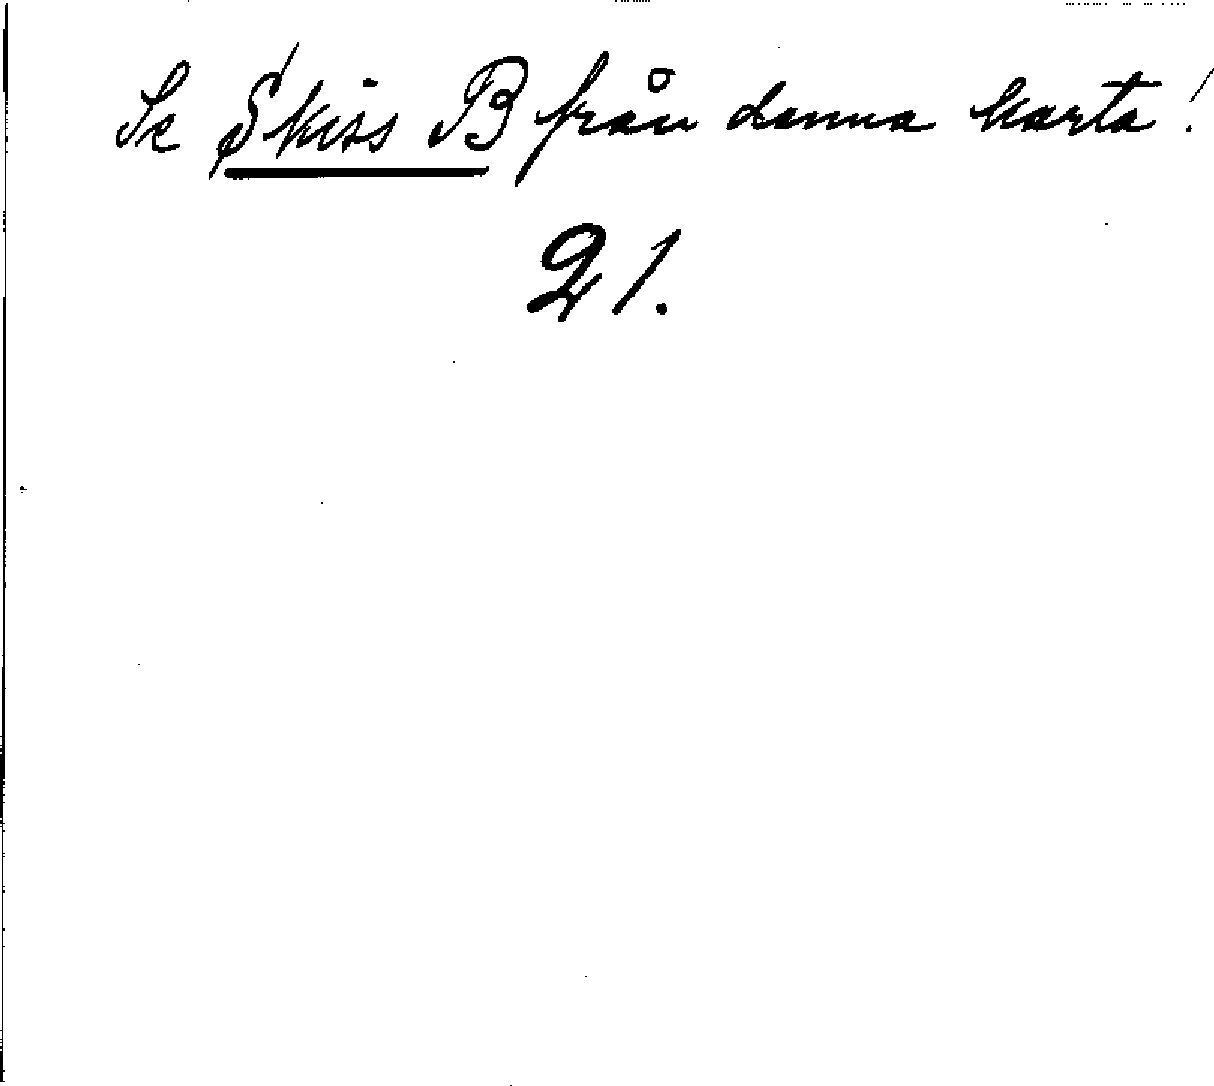 Se Skiss B från denna karta!
21.